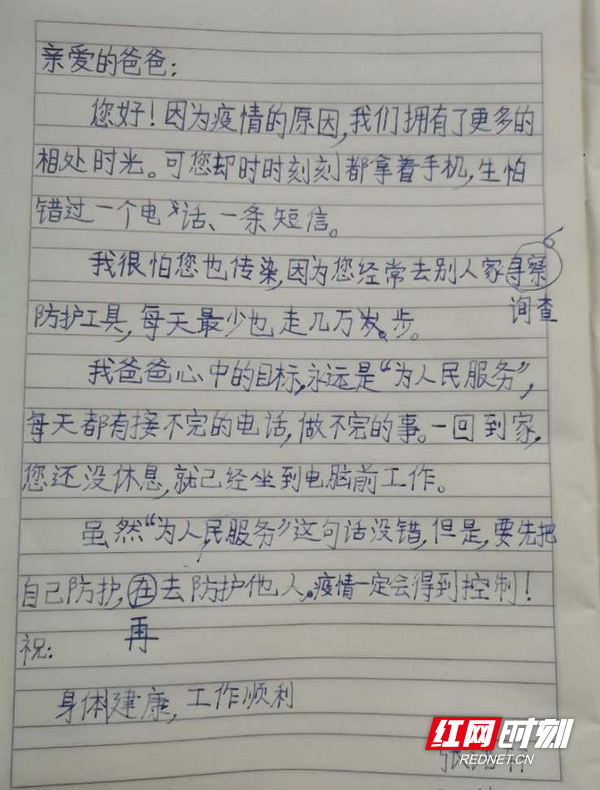 亲爱的爸爸:
您好!因为疫情的原因,我们拥有了更多的
相处时光。可您却时时刻刻都拿着手机,生怕
错过一个电话、一条短信。
我很怕您也传染,因为您经常去别人家寻察
询查
防护工具,每天最少也走几万步。
我爸爸心中的目标,永远是“为人民服务”,
每天都有接不完的电话,做不完的事。一回到家,
您还没休息,就己经坐到电脑前工作。
虽然“为人民服务”这句话没错,但是,要先把
自己防护,在去防护他人。疫情一定会得到控制!
再
祝:
身体建康,工作顺利
红网时刻
REDNET.CN